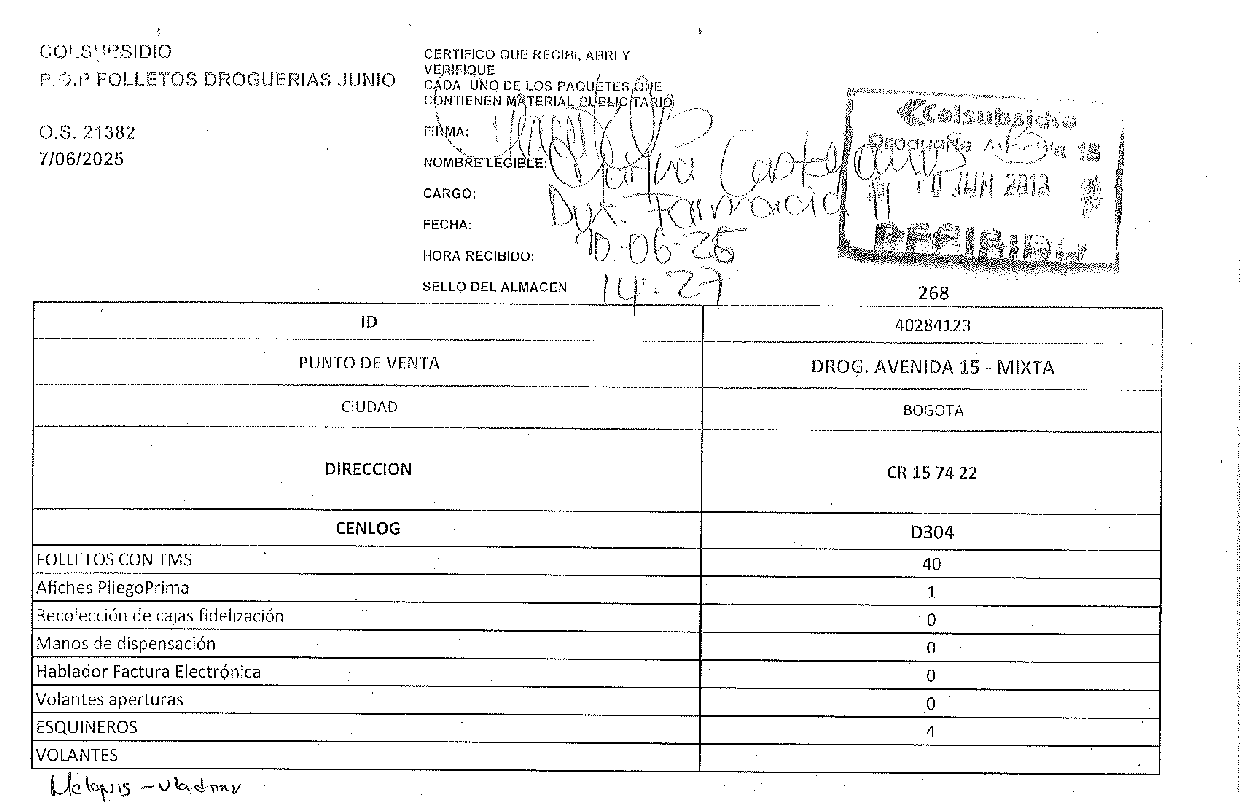 COLSUBSIDIO
P.O.P FOLLETOS DROGUERIAS JUNIO
O.S. 21382
7/06/2025
CERTIFICO QUE RECIBI, ABRI Y
VERIFIQUE
CADA UNO DE LOS PAQUETES QUE
CONTIENEN MATERIAL PUBLICITARIO
FIRMA:
NOMBRE LEGIBLE:
CARGO: Farmacia
FECHA: 10-06-25
HORA RECIBIDO: 14:27
SELLO DEL ALMACEN
Colsubsidio
Droguería 15
10 JUN
RECIBIDO
268
ID 40284123
PUNTO DE VENTA DROG. AVENIDA 15 - MIXTA
CIUDAD BOGOTA
DIRECCION CR 15 74 22
CENLOG D304
FOLLETOS CON TMS 40
Afiches PliegoPrima 1
Recolección de cajas fidelización 0
Manos de dispensación 0
Hablador Factura Electrónica 0
Volantes aperturas 0
ESQUINEROS 4
VOLANTES